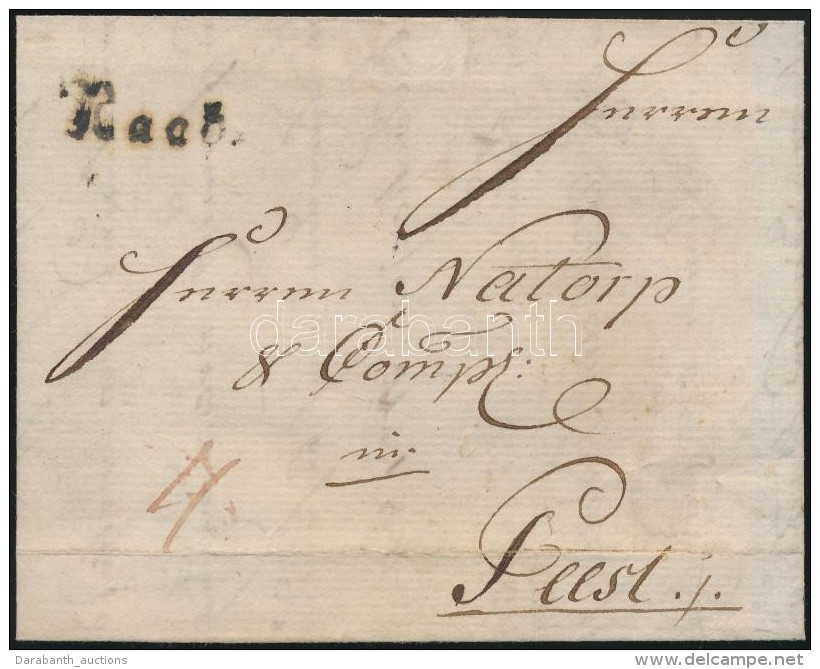 Raab.
Herren
Herren Natorp
& Comp:
in
Pest ./.
darabanth
Darabanth_auctions
delcampe.net